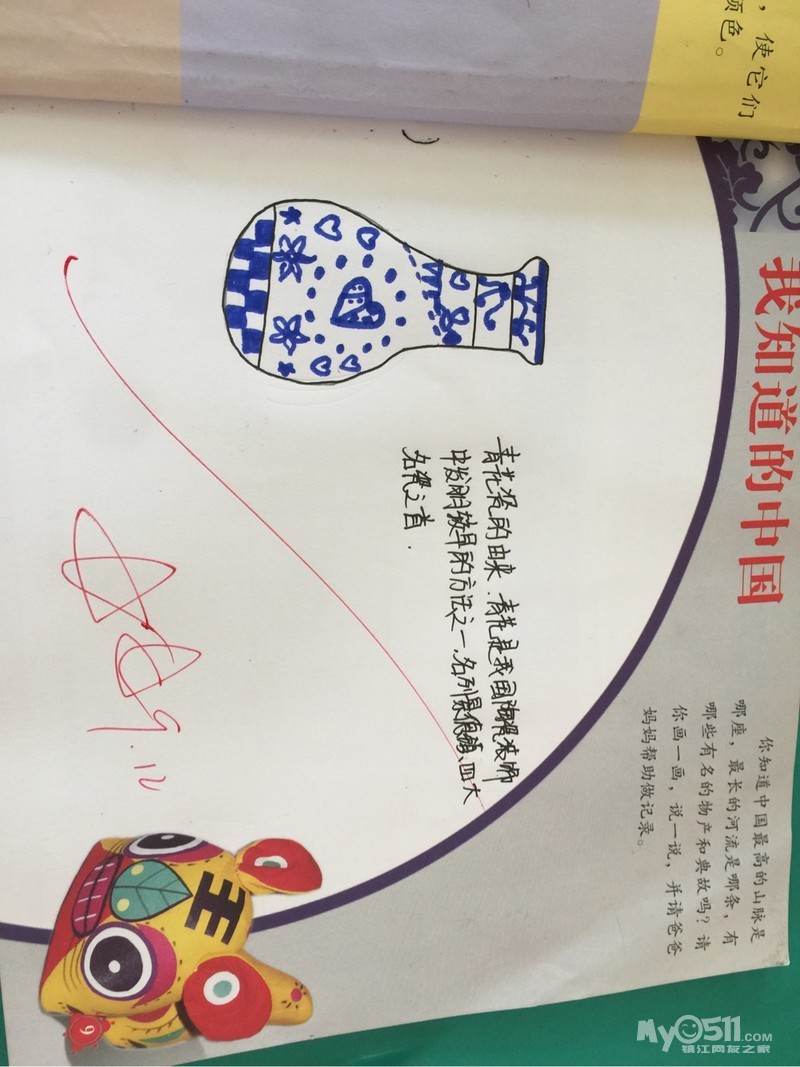 ，使它们
颜色。
我知道的中国
你知道中国最高的山脉是
哪座，最长的河流是哪条，有
哪些有名的物产和典故吗？请
你画一画，说一说，并请爸爸
妈妈帮助做记录。
青花瓷的由来．青花是我国陶瓷装饰
中发明较早的方法之一，名列景德镇、四大
名瓷之首．
9.12
王
9
MyO511.COM
镇江网友之家